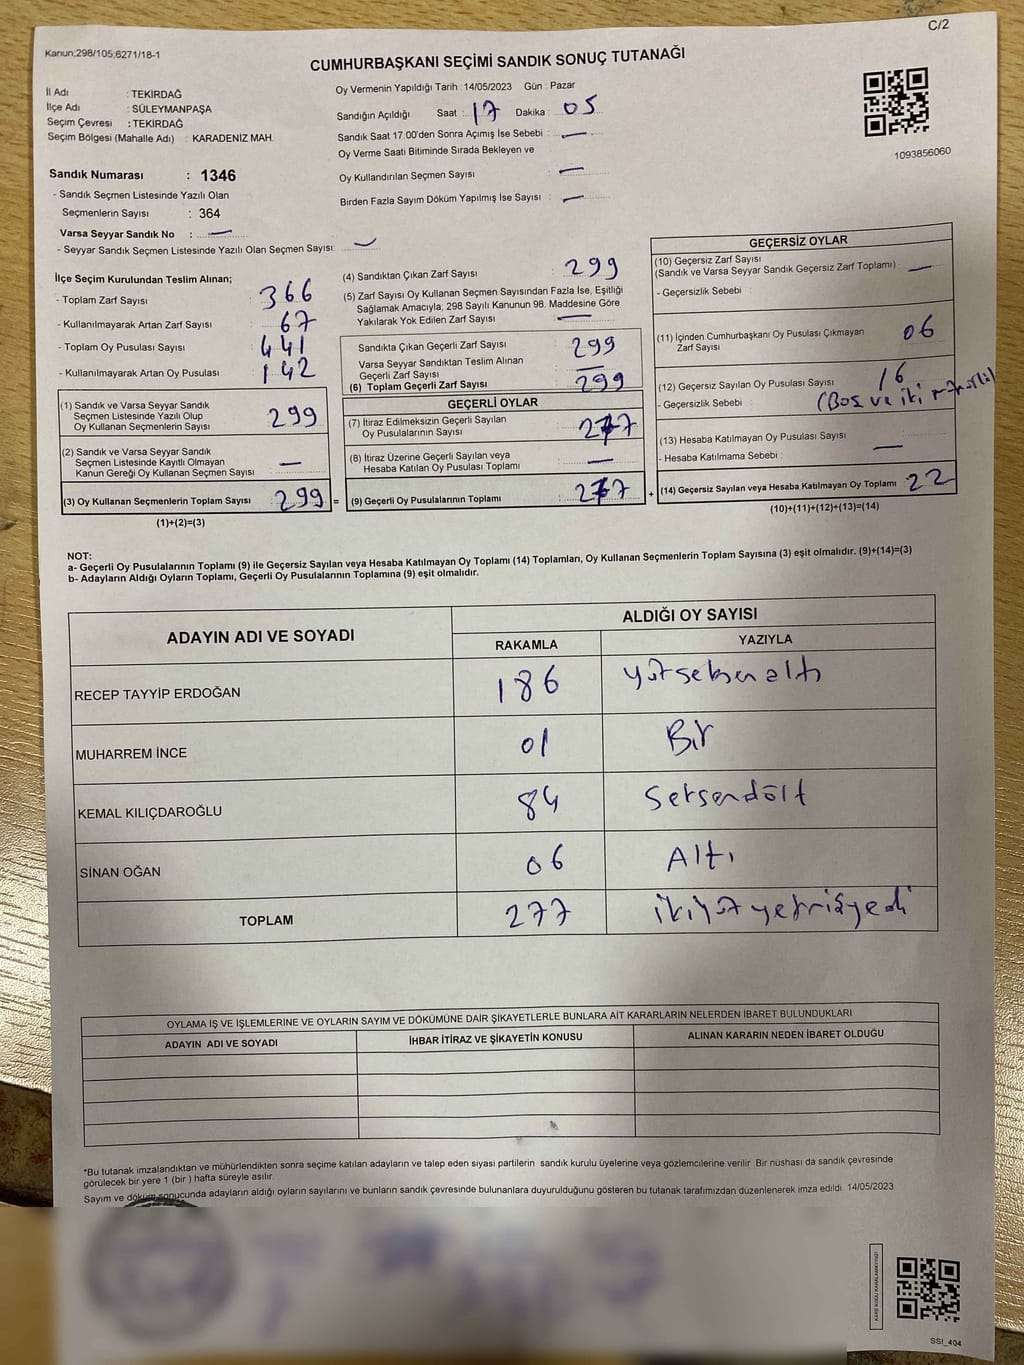 C/2
Kanun;298/105;6271/18-1
CUMHURBAŞKANI SEÇİMİ SANDIK SONUÇ TUTANAĞI
İl Adı : TEKİRDAĞ
İlçe Adı : SÜLEYMANPAŞA
Seçim Çevresi : TEKİRDAĞ
Seçim Bölgesi (Mahalle Adı) : KARADENİZ MAH.
Sandık Numarası : 1346
- Sandık Seçmen Listesinde Yazılı Olan
Seçmenlerin Sayısı : 364
Varsa Seyyar Sandık No : —
- Seyyar Sandık Seçmen Listesinde Yazılı Olan Seçmen Sayısı: —
Oy Vermenin Yapıldığı Tarih : 14/05/2023 Gün : Pazar
Sandığın Açıldığı Saat : 17 Dakika : 05
Sandık Saat 17:00'den Sonra Açılmış İse Sebebi : —
Oy Verme Saati Bitiminde Sırada Bekleyen ve
Oy Kullandırılan Seçmen Sayısı : —
Birden Fazla Sayım Döküm Yapılmış İse Sayısı : —
1093856060
İlçe Seçim Kurulundan Teslim Alınan;
- Toplam Zarf Sayısı : 366
- Kullanılmayarak Artan Zarf Sayısı : 67
- Toplam Oy Pusulası Sayısı : 441
- Kullanılmayarak Artan Oy Pusulası : 142
(1) Sandık ve Varsa Seyyar Sandık
Seçmen Listesinde Yazılı Olup
Oy Kullanan Seçmenlerin Sayısı : 299
(2) Sandık ve Varsa Seyyar Sandık
Seçmen Listesinde Kayıtlı Olmayan
Kanun Gereği Oy Kullanan Seçmen Sayısı : —
(3) Oy Kullanan Seçmenlerin Toplam Sayısı : 299 =
(1)+(2)=(3)
(4) Sandıktan Çıkan Zarf Sayısı : 299
(5) Zarf Sayısı Oy Kullanan Seçmen Sayısından Fazla İse, Eşitliği
Sağlamak Amacıyla, 298 Sayılı Kanunun 98. Maddesine Göre
Yakılarak Yok Edilen Zarf Sayısı : —
Sandıkta Çıkan Geçerli Zarf Sayısı : 299
Varsa Seyyar Sandıktan Teslim Alınan
Geçerli Zarf Sayısı : —
(6) Toplam Geçerli Zarf Sayısı : 299
GEÇERLİ OYLAR
(7) İtiraz Edilmeksizin Geçerli Sayılan
Oy Pusulalarının Sayısı : 277
(8) İtiraz Üzerine Geçerli Sayılan veya
Hesaba Katılan Oy Pusulası Toplamı : —
(9) Geçerli Oy Pusulalarının Toplamı : 277 +
GEÇERSİZ OYLAR
(10) Geçersiz Zarf Sayısı
(Sandık ve Varsa Seyyar Sandık Geçersiz Zarf Toplamı) : —
- Geçersizlik Sebebi :
(11) İçinden Cumhurbaşkanı Oy Pusulası Çıkmayan
Zarf Sayısı : 06
(12) Geçersiz Sayılan Oy Pusulası Sayısı : 16
- Geçersizlik Sebebi : (Boş ve iki mühürlü)
(13) Hesaba Katılmayan Oy Pusulası Sayısı : —
- Hesaba Katılmama Sebebi :
(14) Geçersiz Sayılan veya Hesaba Katılmayan Oy Toplamı : 22
(10)+(11)+(12)+(13)=(14)
NOT:
a- Geçerli Oy Pusulalarının Toplamı (9) ile Geçersiz Sayılan veya Hesaba Katılmayan Oy Toplamı (14) Toplamları, Oy Kullanan Seçmenlerin Toplam Sayısına (3) eşit olmalıdır. (9)+(14)=(3)
b- Adayların Aldığı Oyların Toplamı, Geçerli Oy Pusulalarının Toplamına (9) eşit olmalıdır.
ADAYIN ADI VE SOYADI ALDIĞI OY SAYISI
RAKAMLA YAZIYLA
RECEP TAYYİP ERDOĞAN 186 yüzseksenaltı
MUHARREM İNCE 01 Bir
KEMAL KILIÇDAROĞLU 84 Seksendört
SİNAN OĞAN 06 Altı
TOPLAM 277 ikiyüzyetmişyedi
OYLAMA İŞ VE İŞLEMLERİNE VE OYLARIN SAYIM VE DÖKÜMÜNE DAİR ŞİKAYETLERLE BUNLARA AİT KARARLARIN NELERDEN İBARET BULUNDUKLARI
ADAYIN ADI VE SOYADI İHBAR İTİRAZ VE ŞİKAYETİN KONUSU ALINAN KARARIN NEDEN İBARET OLDUĞU
*Bu tutanak imzalandıktan ve mühürlendikten sonra seçime katılan adayların ve talep eden siyasi partilerin sandık kurulu üyelerine veya gözlemcilerine verilir. Bir nüshası da sandık çevresinde
görülecek bir yere 1 (bir ) hafta süreyle asılır.
Sayım ve döküm sonucunda adayların aldığı oyların sayılarını ve bunların sandık çevresinde bulunanlara duyurulduğunu gösteren bu tutanak tarafımızdan düzenlenerek imza edildi. 14/05/2023
SSI_404